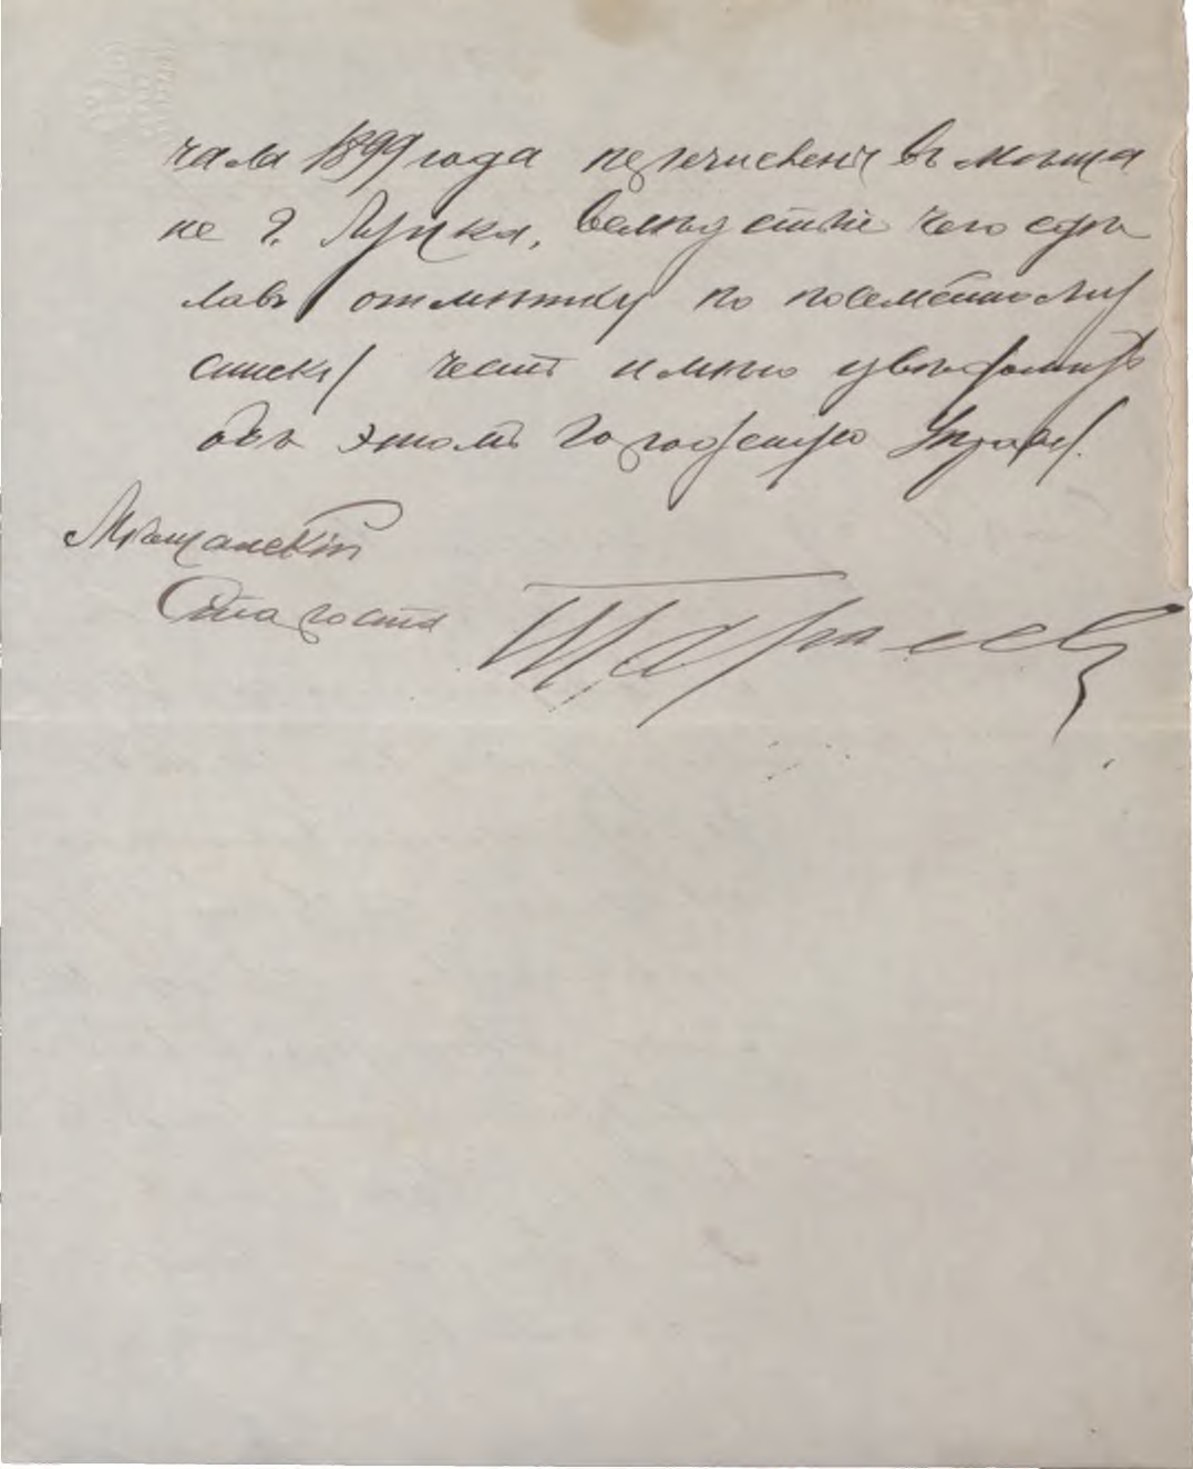 чала 1899 года перечислены въ мѣща
не г. Луцка, вслѣдствіе чего сдѣ
лавъ отмѣтку по посемейному
списку честь имѣю увѣдомить
объ этомъ Городскую Управу.
Мѣщанскій
Староста